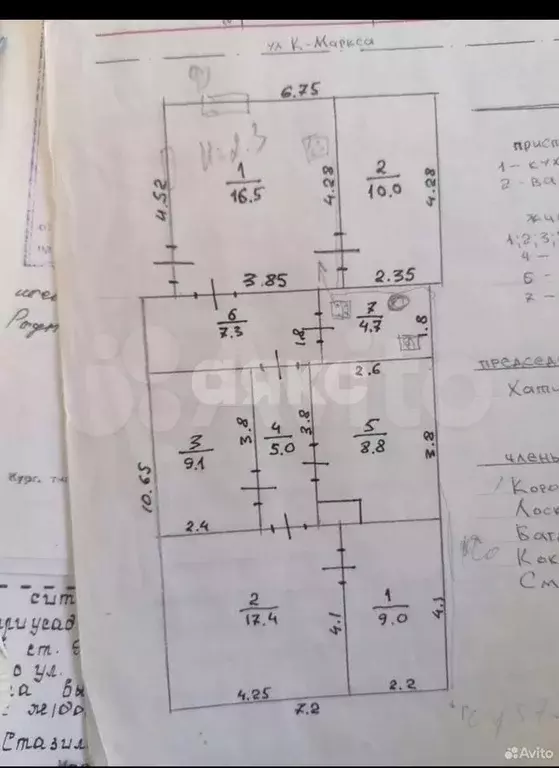 ул К-Маркса
6.75
4.52
1
16.5
4.28
2
10.0
4.28
3.85
2.35
6
7.3
1.8
7
4.7
1.8
2.6
10.65
3
9.1
3.8
4
5.0
3.8
5
8.8
3.8
2.4
2
17.4
4.1
1
9.0
4.25
2.2
7.2
присп
1 - кух
2 - ва
жил
1;2;3;
4 -
6 -
7 -
председа
Хати
члены
Коро
Лоск
Бат
Кок
См
сит
приусад
ст.
о ул.
ва вы
Стазил
Avito
Avito